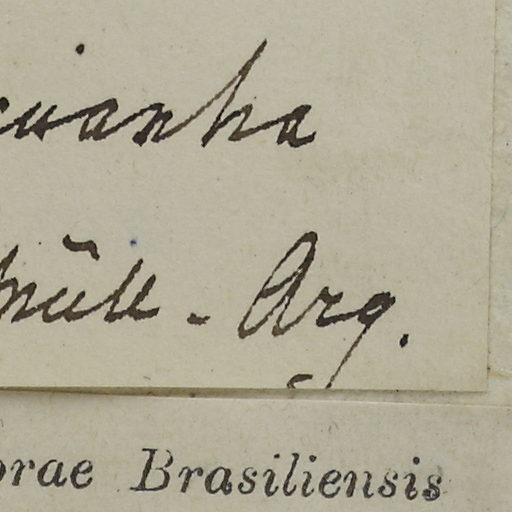 cuanha
Müll - Arg.
orae Brasiliensis